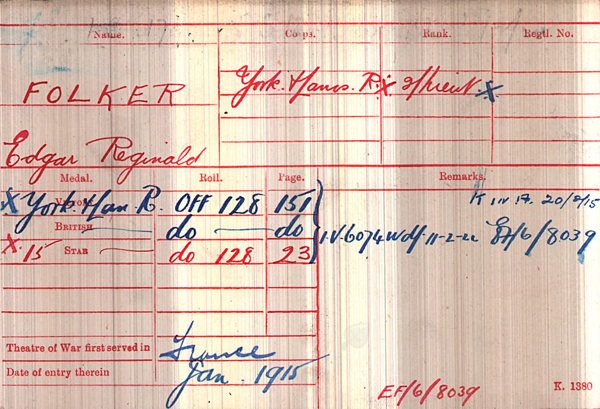 Name. Corps. Rank. Regtl. No.
FOLKER York. & Lancs. R. X 2/Lieut X
Edgar Reginald
Medal. Roll. Page. Remarks.
X York & Lan. R. OFF 128 151 K in A. 20/2/15
BRITISH do do I.V. 6074 W df. 11-2-22 EF/6/8039
X 15 STAR do 128 23
Theatre of War first served in France
Date of entry therein Jan. 1915
EF/6/8039 K. 1380